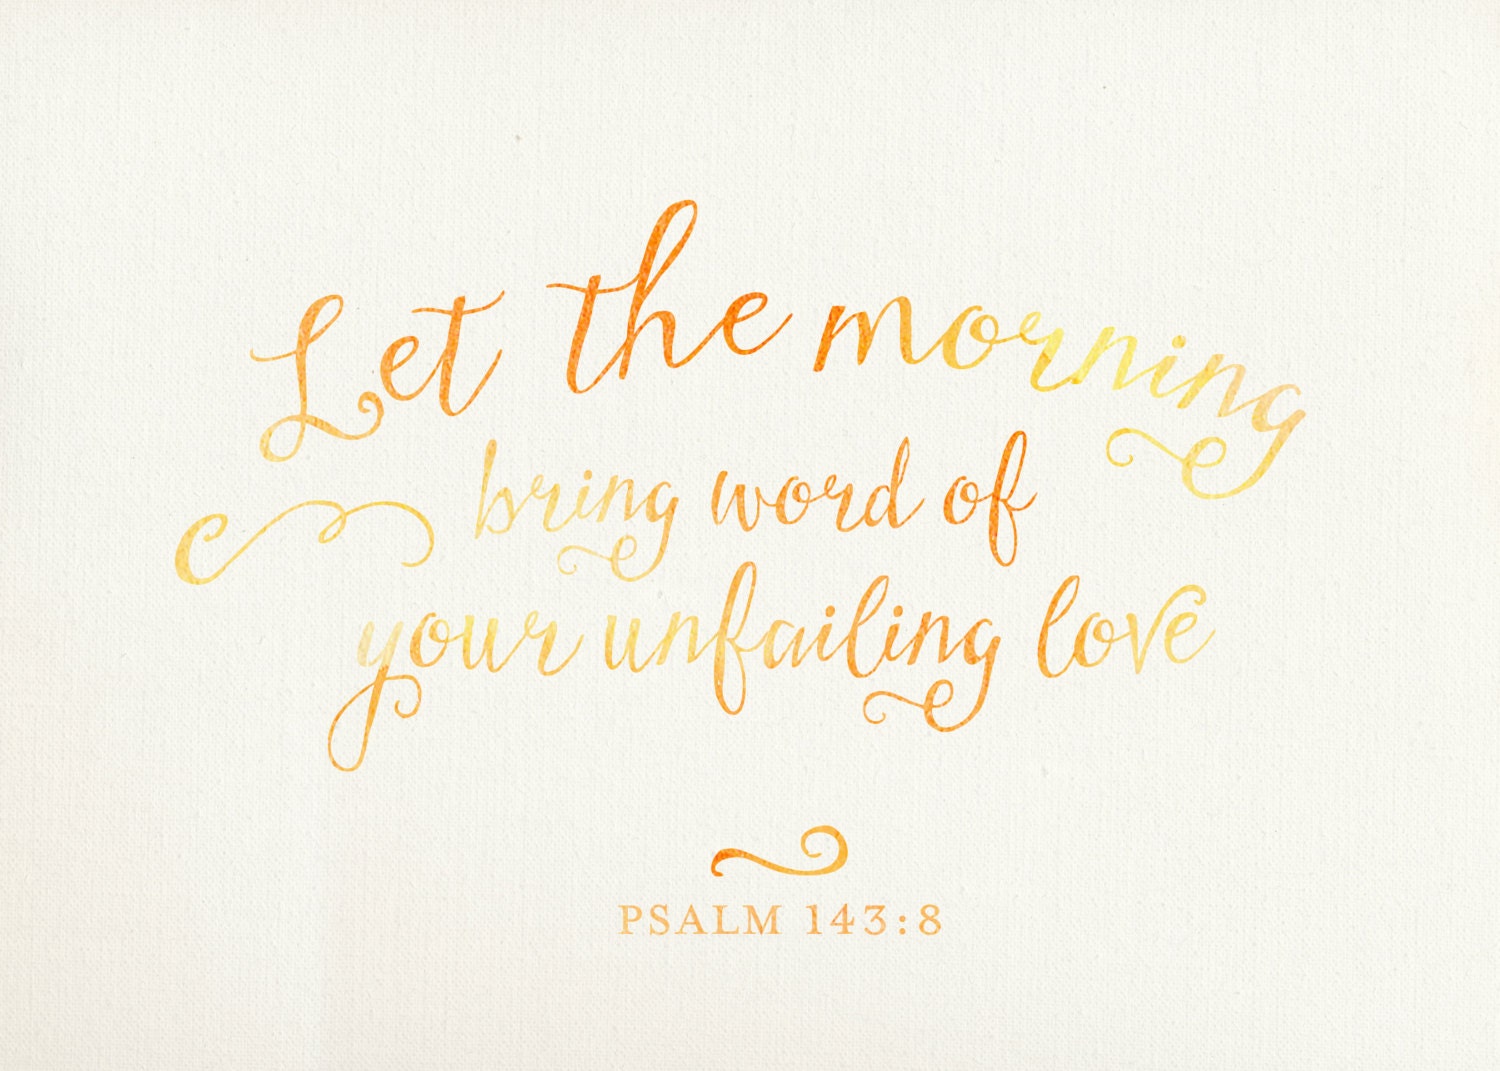 Let the morning
bring word of
your unfailing love
PSALM 143:8